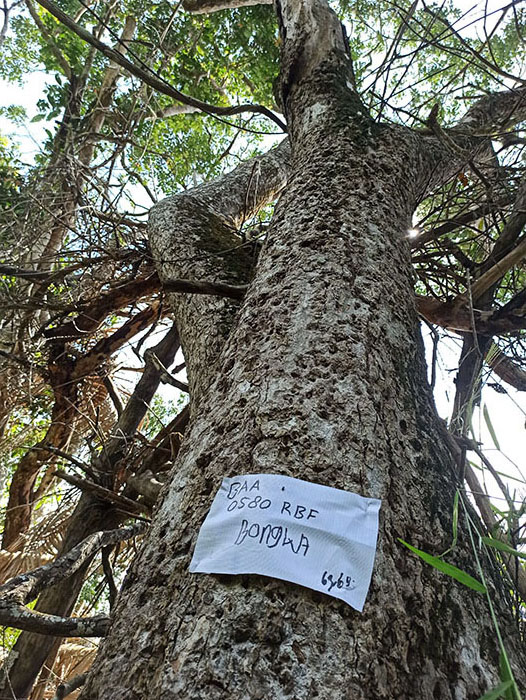 BAA
0580 RBF
BONGWA